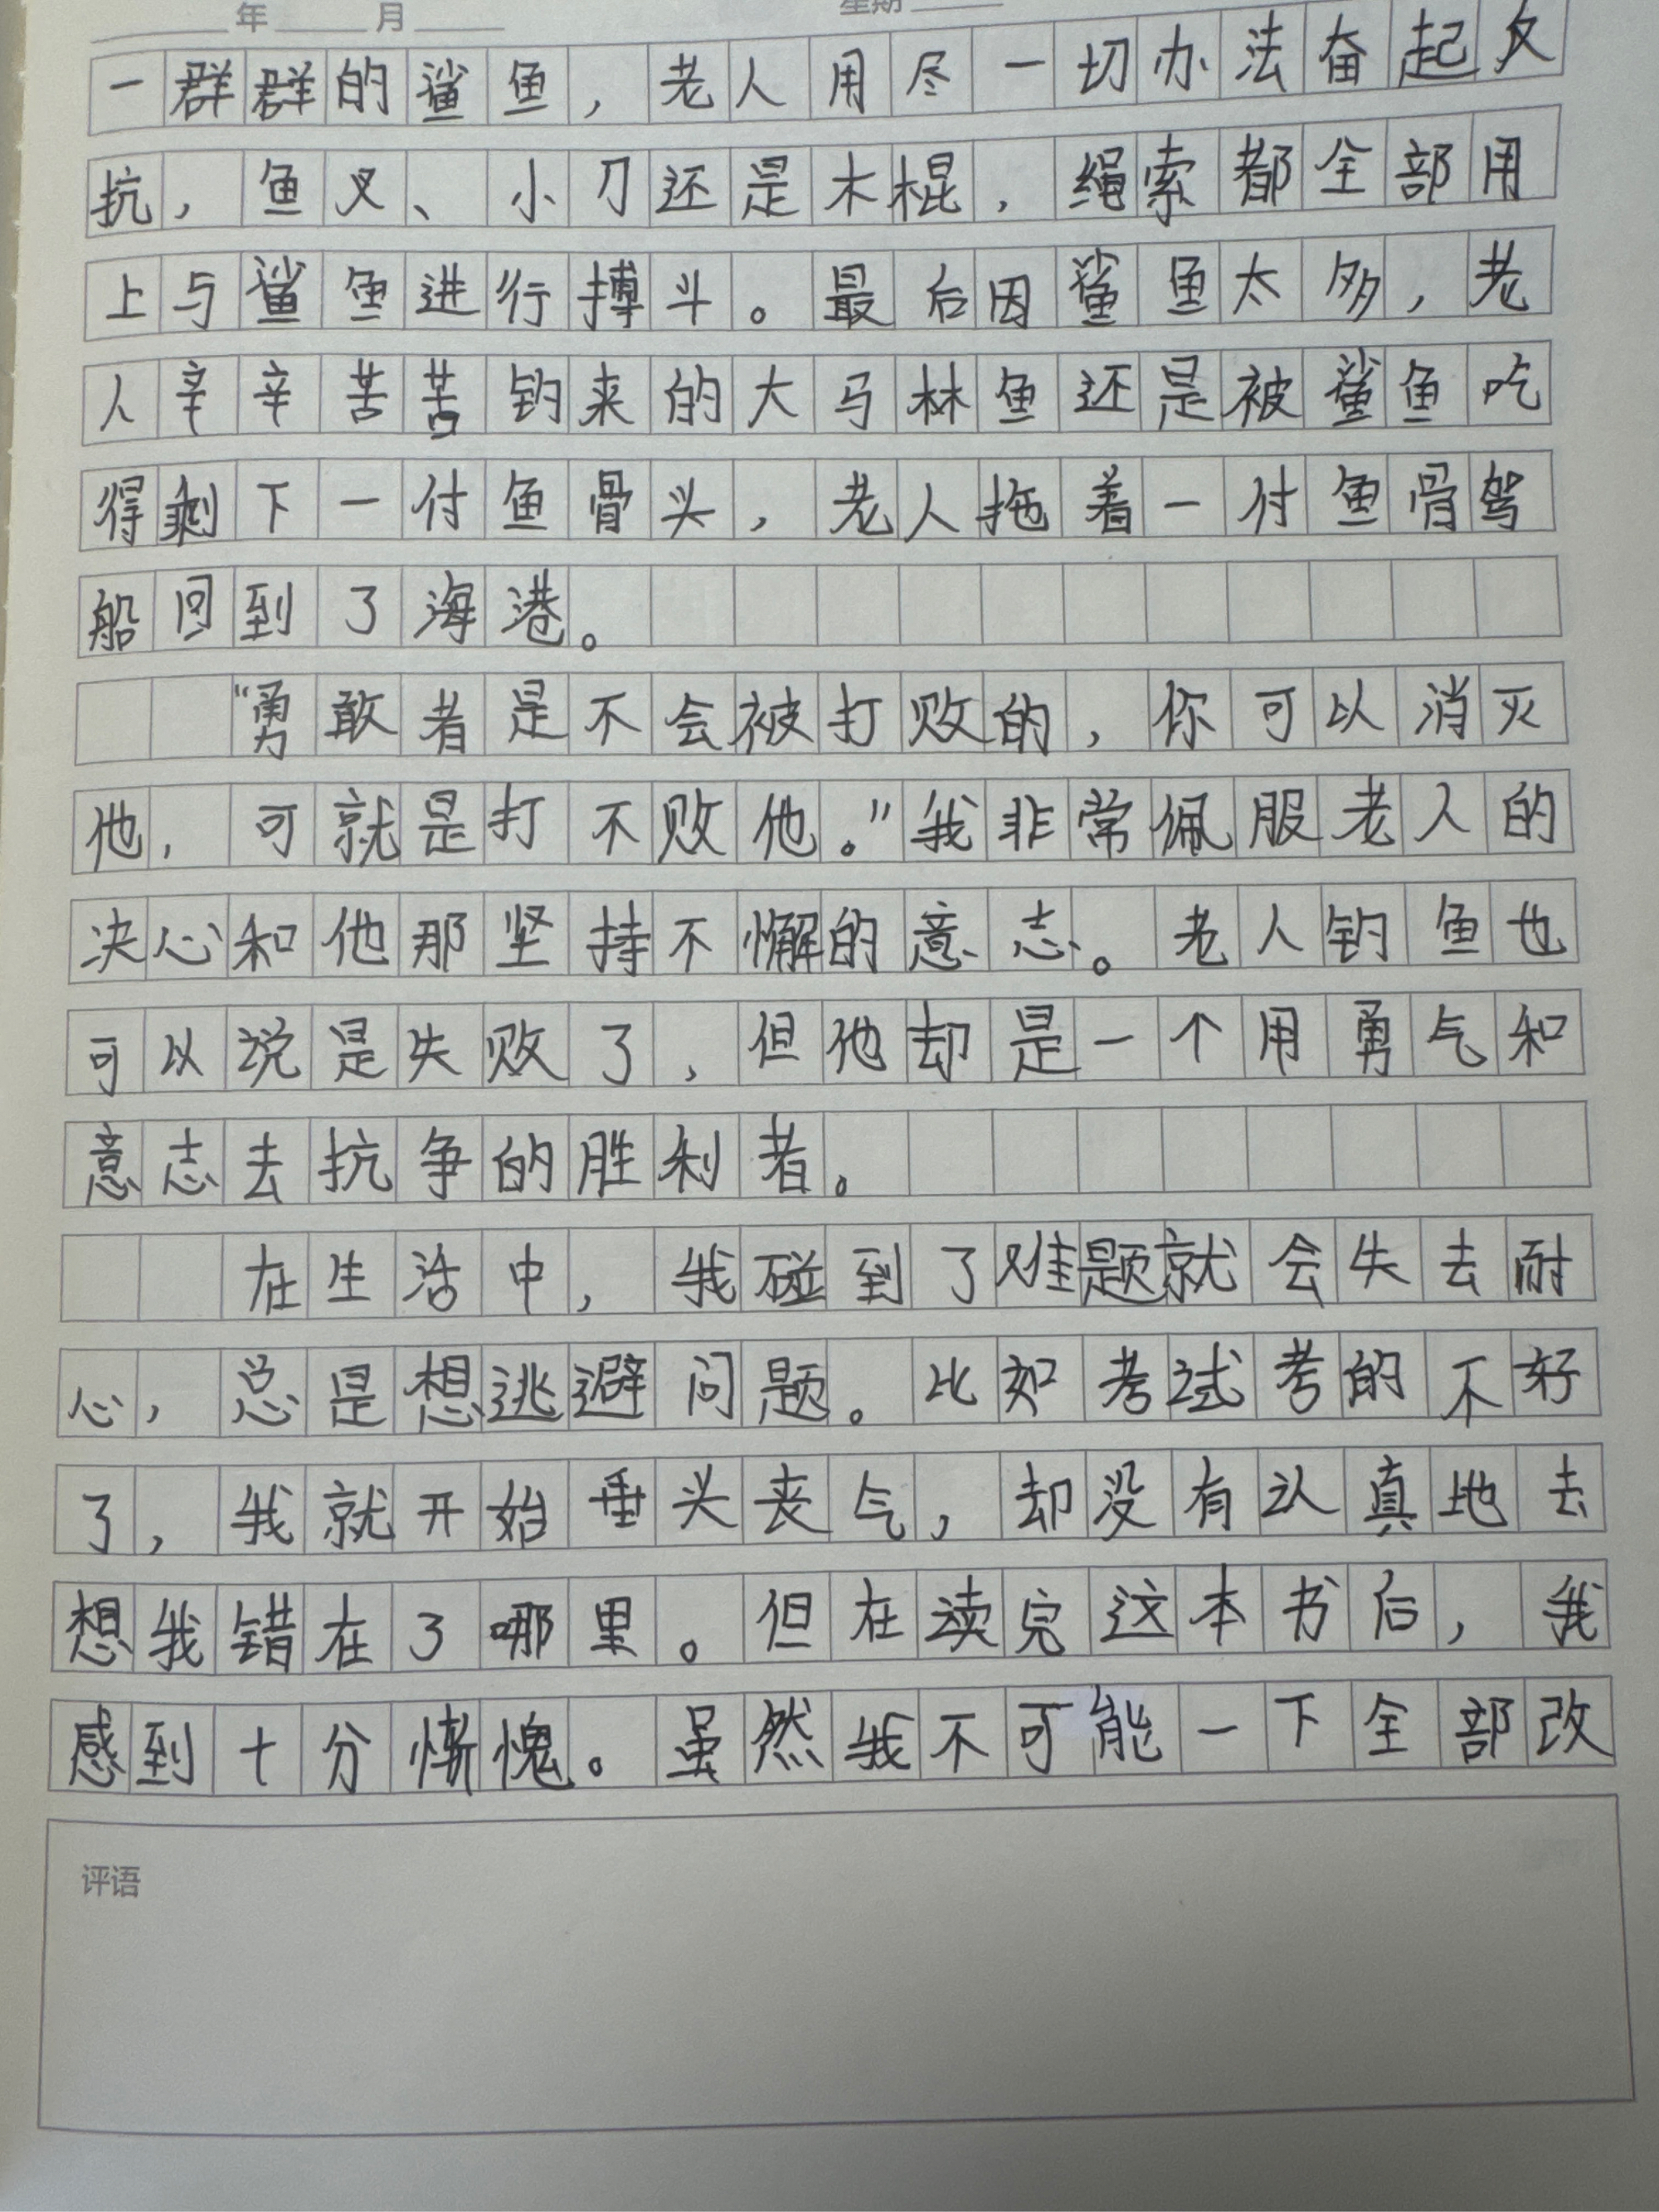 年 月 星期
一群群的鲨鱼，老人用尽一切办法奋起反
抗，鱼叉、小刀还是木棍，绳索都全部用
上与鲨鱼进行搏斗。最后因鲨鱼太多，老
人辛辛苦苦钓来的大马林鱼还是被鲨鱼吃
得剩下一付鱼骨头，老人拖着一付鱼骨驾
船回到了海港。
“勇敢者是不会被打败的，你可以消灭
他，可就是打不败他。”我非常佩服老人的
决心和他那坚持不懈的意志。老人钓鱼也
可以说是失败了，但他却是一个用勇气和
意志去抗争的胜利者。
在生活中，我碰到了难题就会失去耐
心，总是想逃避问题。比如考试考的不好
了，我就开始垂头丧气，却没有认真地去
想我错在了哪里。但在读完这本书后，我
感到十分惭愧。虽然我不可能一下全部改
评语